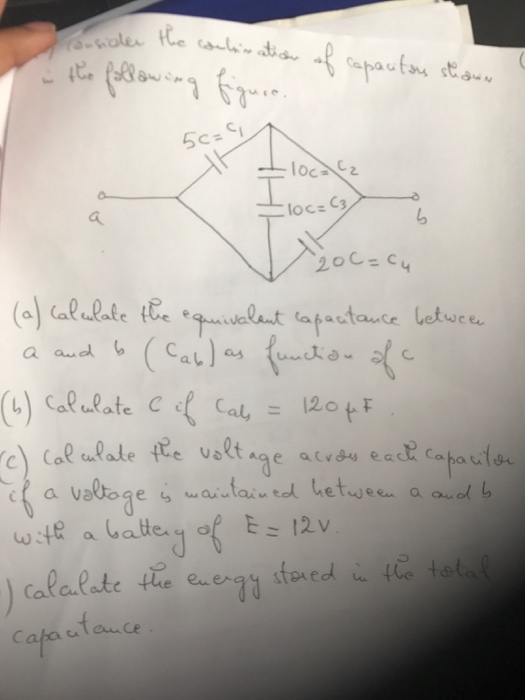 consider the combination of capacitors shown
in the following figure.
5C = C1
10C = C2
10C = C3
a
b
20C = C4
(a) Calculate the equivalent capacitance between
a and b (Cab) as function of C
(b) Calculate C if Cab = 120 μF.
(c) Calculate the voltage across each capacitor
if a voltage is maintained between a and b
with a battery of E = 12V.
) Calculate the energy stored in the total
capacitance.